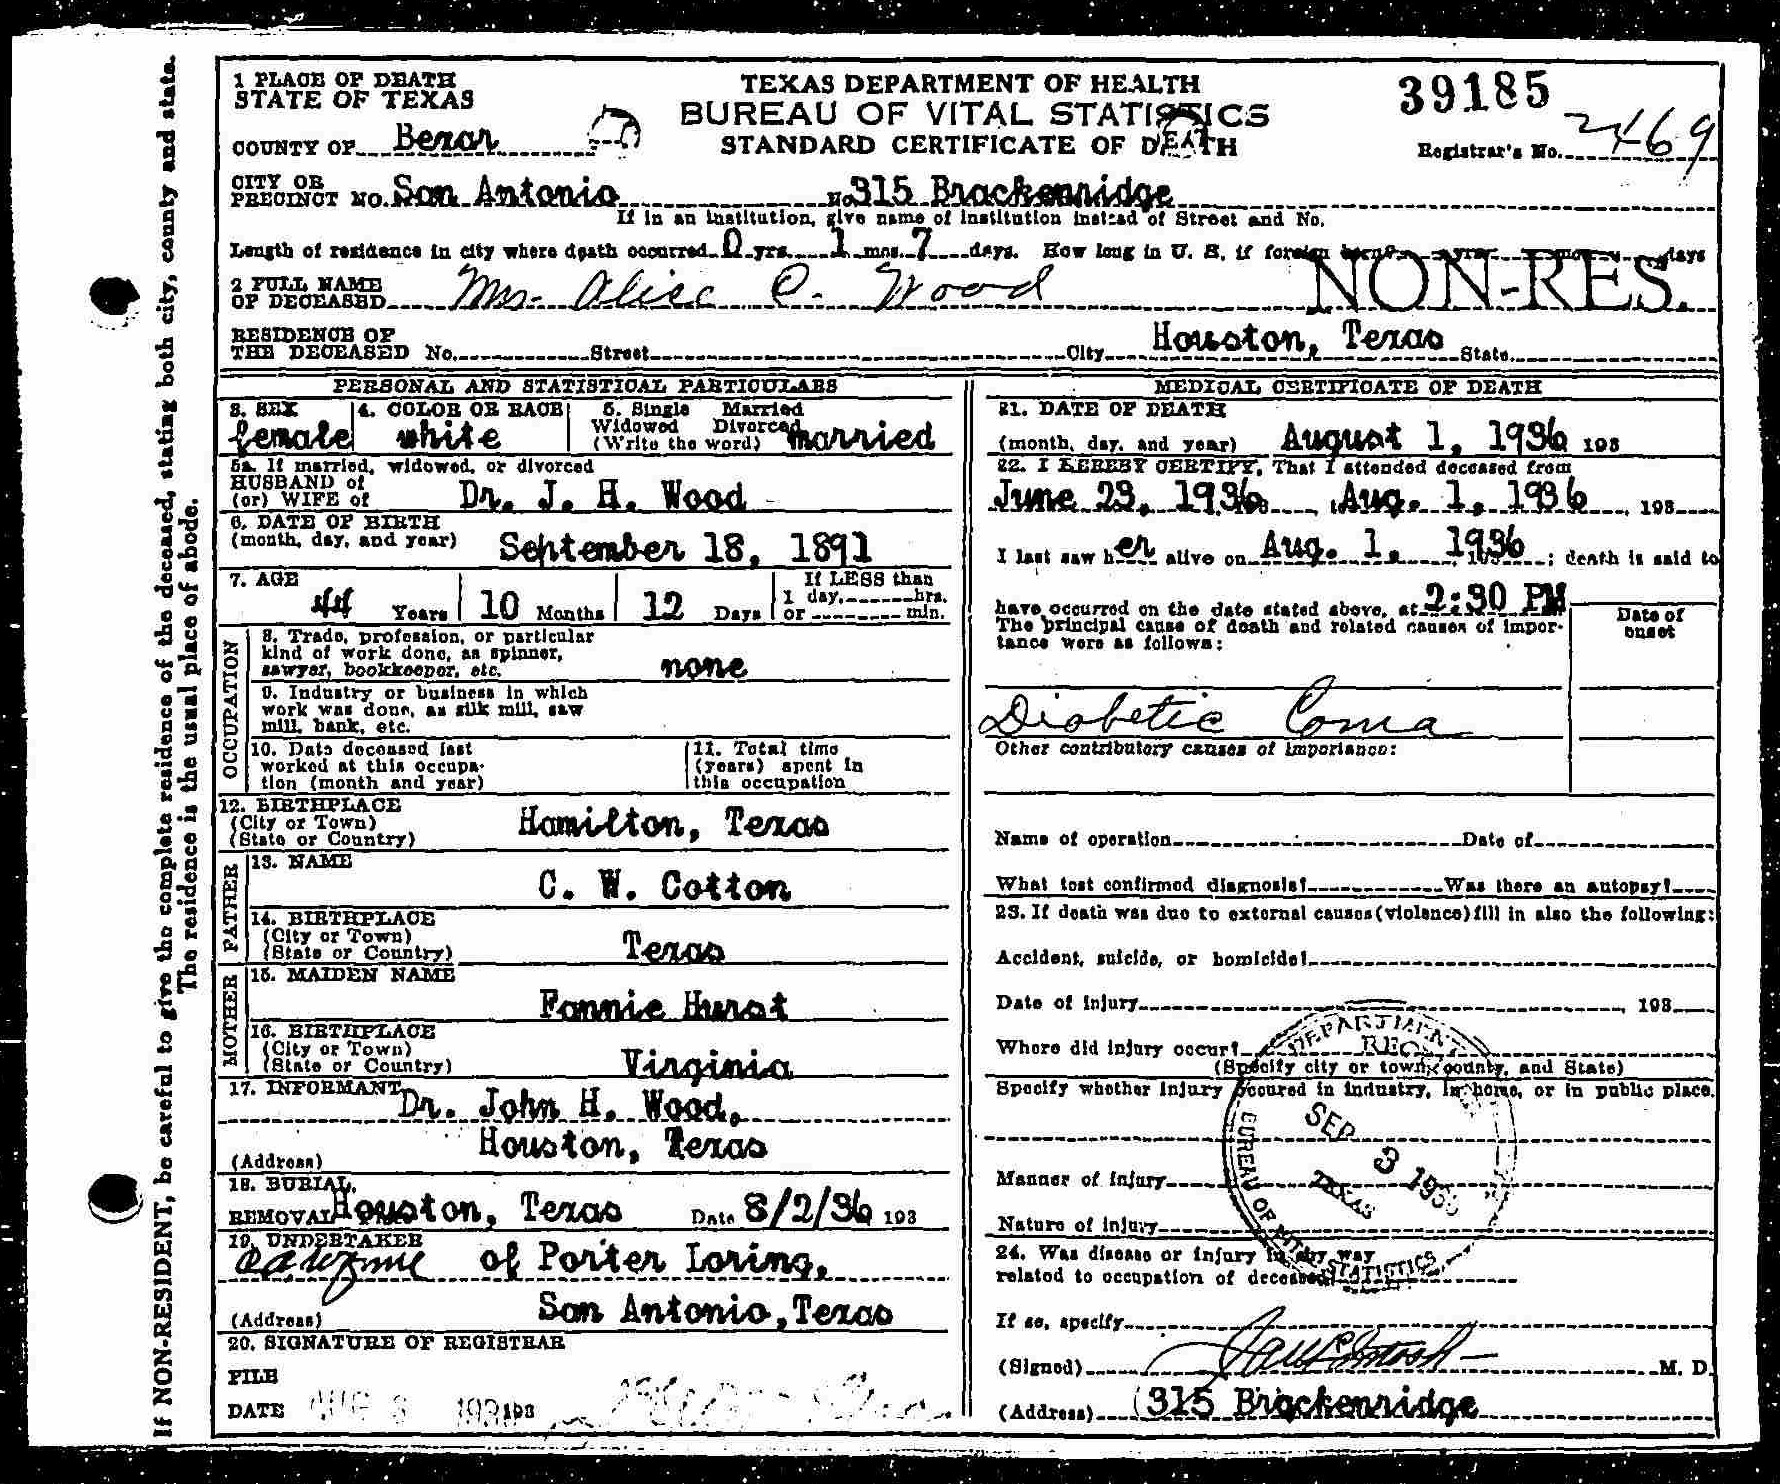 If NON-RESIDENT, be careful to give the complete residence of the deceased, stating both city, county and state.
The residence is the usual place of abode.
1 PLACE OF DEATH
STATE OF TEXAS
COUNTY OF Bexar
TEXAS DEPARTMENT OF HEALTH
BUREAU OF VITAL STATISTICS
STANDARD CERTIFICATE OF DEATH
39185
Registrar's No. 2469
CITY OR
PRECINCT NO. San Antonio No 315 Brackenridge
If in an institution, give name of institution instead of Street and No.
Length of residence in city where death occurred 0 yrs. 1 mos. 7 days. How long in U. S. if foreign born? yrs. mos. days
NON-RES.
2 FULL NAME
OF DECEASED Mrs. Alice C. Wood
RESIDENCE OF
THE DECEASED No. Street City Houston, Texas State
PERSONAL AND STATISTICAL PARTICULARS
3. SEX female
4. COLOR OR RACE white
5. Single Married
Widowed Divorced
(Write the word) married
5a. If married, widowed, or divorced
HUSBAND of
(or) WIFE of Dr. J. H. Wood
6. DATE OF BIRTH
(month, day, and year) September 18, 1891
7. AGE
44 Years 10 Months 12 Days
If LESS than
1 day, hrs.
or min.
OCCUPATION
8. Trade, profession, or particular
kind of work done, as spinner,
sawyer, bookkeeper, etc. none
9. Industry or business in which
work was done, as silk mill, saw
mill, bank, etc.
10. Date deceased last
worked at this occupa-
tion (month and year)
11. Total time
(years) spent in
this occupation
12. BIRTHPLACE
(City or Town)
(State or Country) Hamilton, Texas
FATHER
13. NAME C. W. Cotton
14. BIRTHPLACE
(City or Town)
(State or Country) Texas
MOTHER
15. MAIDEN NAME Fannie Hurst
16. BIRTHPLACE
(City or Town)
(State or Country) Virginia
17. INFORMANT Dr. John H. Wood,
(Address) Houston, Texas
18. BURIAL,
REMOVAL Houston, Texas Date 8/2/36 193
19. UNDERTAKER
of Porter Loring,
(Address) San Antonio, Texas
20. SIGNATURE OF REGISTRAR
FILE
DATE AUG 3 193 193
MEDICAL CERTIFICATE OF DEATH
21. DATE OF DEATH
(month, day, and year) August 1, 1936 193
22. I HEREBY CERTIFY, That I attended deceased from
June 23, 1936 to Aug. 1, 1936, 193
I last saw her alive on Aug. 1, 1936, 193 ; death is said to
have occurred on the date stated above, at 2:30 PM
The principal cause of death and related causes of impor-
tance were as follows:
Date of
onset
Diabetic Coma
Other contributory causes of importance:
Name of operation Date of
What test confirmed diagnosis? Was there an autopsy?
23. If death was due to external causes (violence) fill in also the following:
Accident, suicide, or homicide?
Date of injury , 193
Where did injury occur?
(Specify city or town, county, and State)
Specify whether injury occured in industry, in home, or in public place.
Manner of injury
Nature of injury
24. Was disease or injury in any way
related to occupation of deceased?
If so, specify
(Signed) M. D.
(Address) 315 Brackenridge
DEPARTMENT
BUREAU OF VITAL STATISTICS
SEP 3 1936
TEXAS